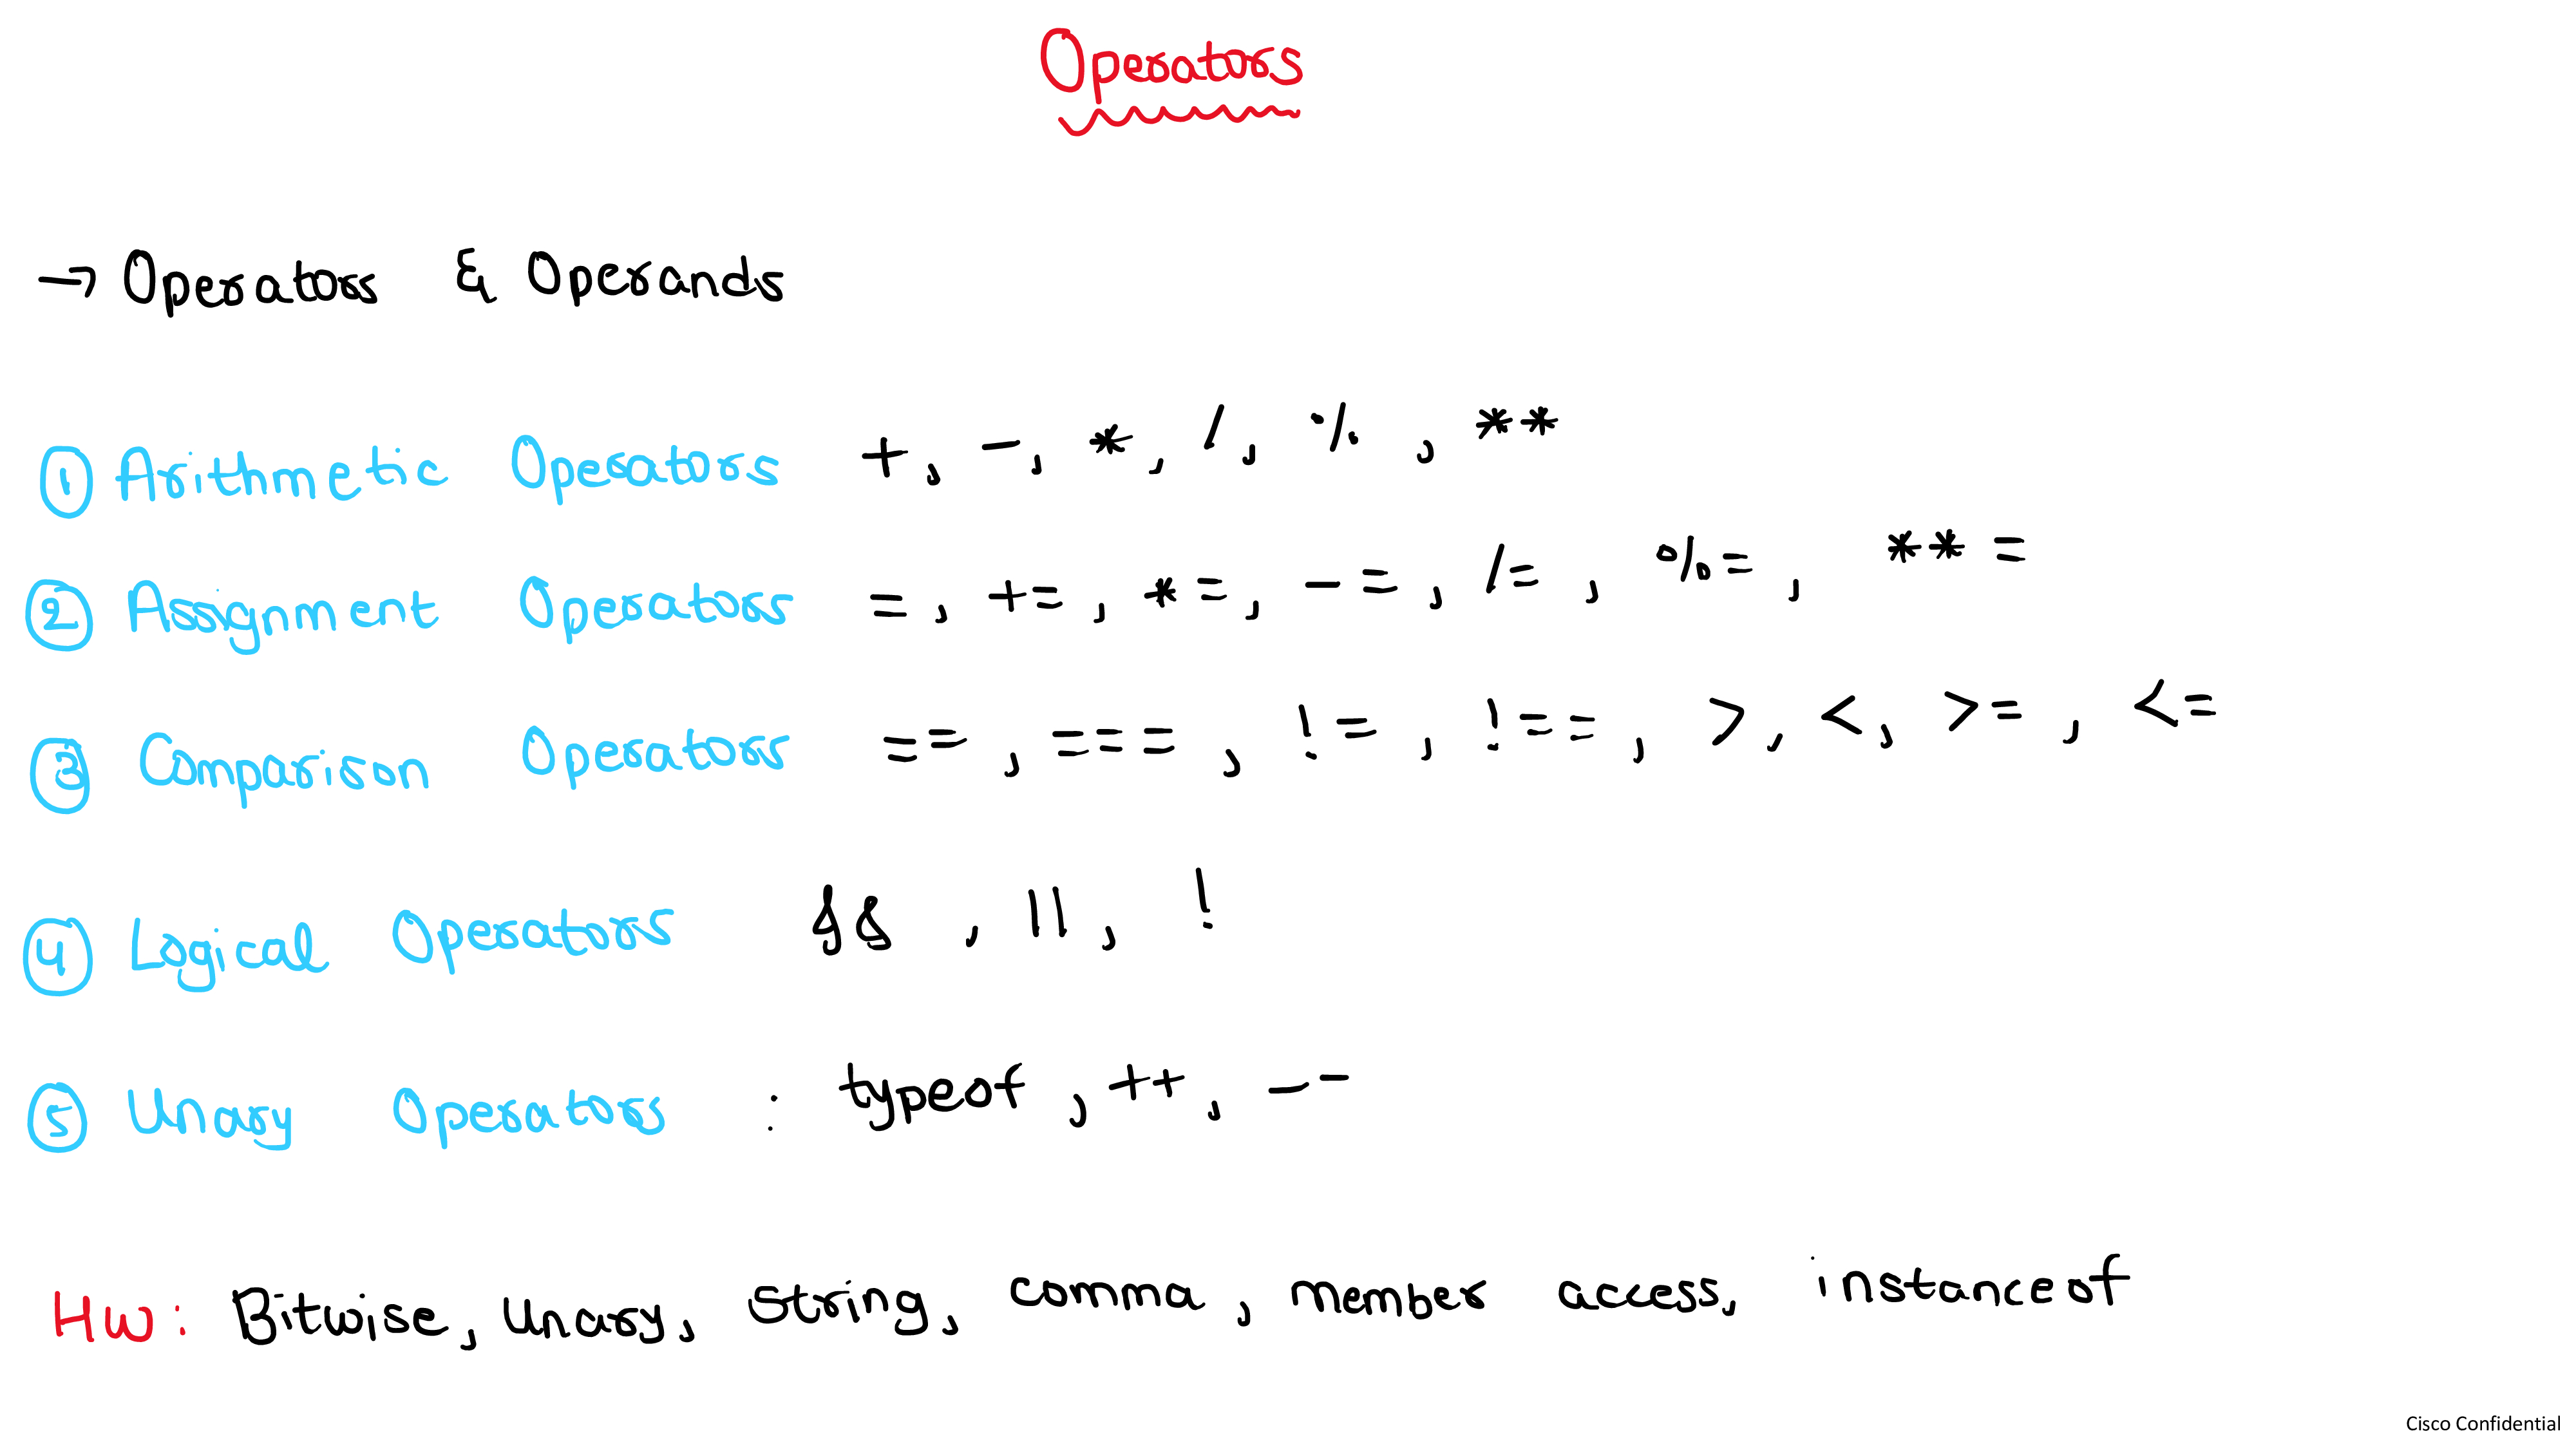 Operators
→ Operators & Operands
① Arithmetic Operators +, -, *, /, %, **
② Assignment Operators =, +=, *=, -=, /=, %=, **=
③ Comparison Operators ==, ===, !=, !==, >, <, >=, <=
④ Logical Operators &&, ||, !
⑤ Unary Operators : typeof, ++, --
HW: Bitwise, Unary, String, comma, member access, instanceof
Cisco Confidential